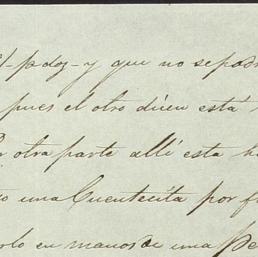 y que no se podr
pues el otro dicen está
otra parte allí esta h
o una Cuentecita por f
rlo en manos de una Pe